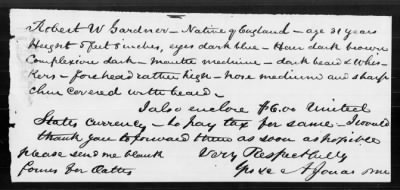 Robert W Gardner – Native of England – age 31 years
Height 5 feet 8 inches, eyes dark blue – Hair dark brown
Complexion dark – Mouth medium – dark beard & Whis-
kers – forehead rather high – nose medium and sharp
chin covered with beard –
I also enclose $6.00 United
States currency – to pay tax for same – I would
thank you to forward them as soon as possible
please send me blank Very Respectfully
forms for Oaths